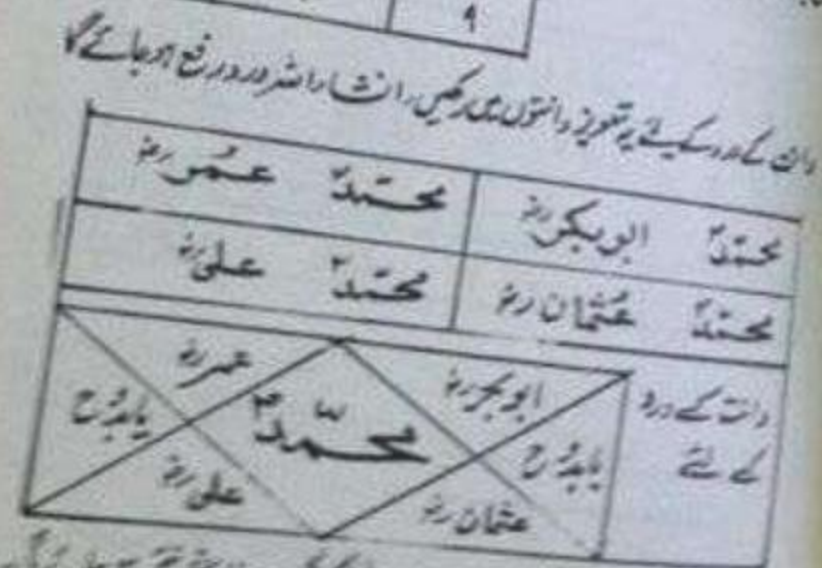 ۹
دانت کے درد کیلئے یہ تعویز دانتوں میں رکھیں، انشاء اللہ درد رفع ہو جائے گا
محمدؐ ابوبکرؓ محمدؐ عمرؓ
محمدؐ عثمانؓ محمدؐ علیؓ
دانت کے درد
کے لئے
ابوبکرؓ
عمرؓ
یابدُّوح
محمدؐ
یابدُّوح
عثمانؓ
علیؓ